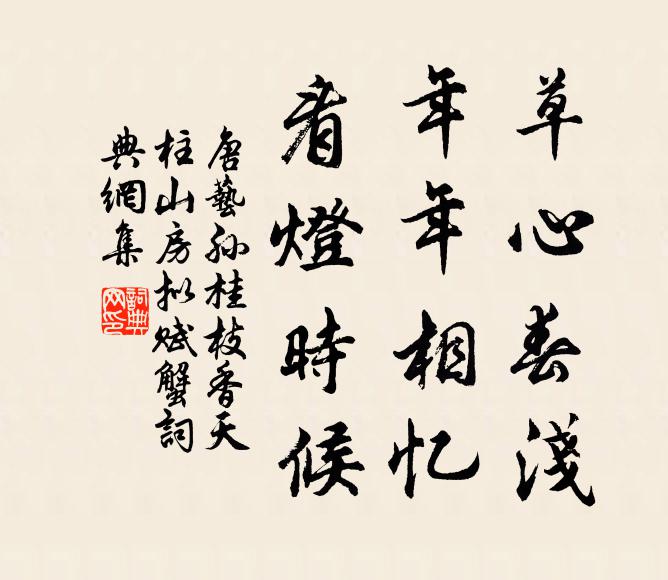 草心春淺
年年相忆
看燈時候
唐藝孫桂枝香天
柱山房拟赋蟹詞
典網集
詞典网印